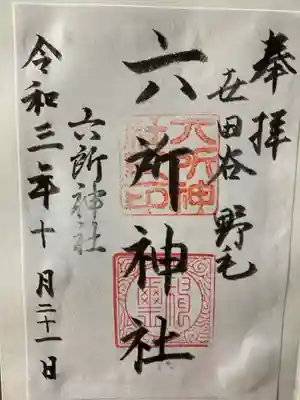 奉拝
世田谷 野毛
六所神社
六所神社
令和三年十月二十一日